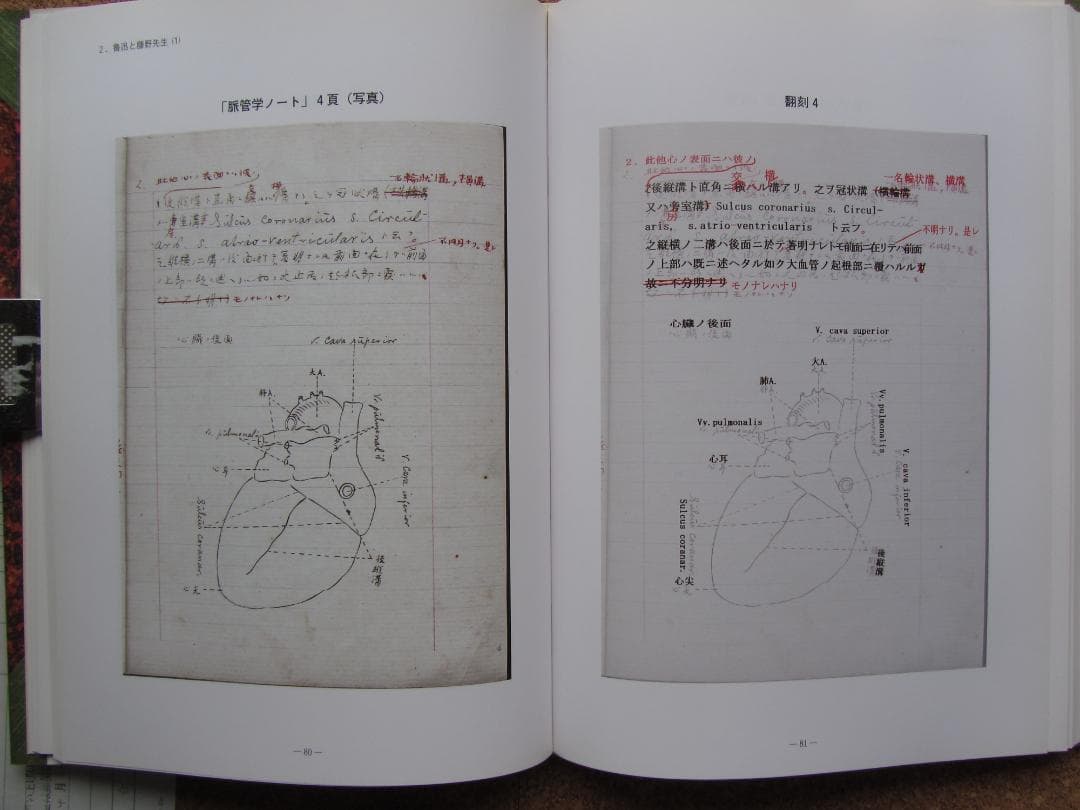 2. 魯迅と藤野先生(1)
「脈管学ノート」4頁(写真)
2. 此他心ノ表面ニハ彼ノ
一名輪状溝,横溝
Sulcus coronarius s. Circul-
aris, s. atrio-ventricularis ト云フ。
不明ナリ。是レ
モノナレハナリ
心臓ノ後面
V. Cava superior
大A.
肺A.
V. pulmonalis
V. pulmonalis
心耳
V. Cava inferior
Sulcus coronar.
後縦溝
心尖
4
―80―
翻刻4
2. 此他心ノ表面ニハ彼ノ
交 横
一名輪状溝、横溝
後縦溝ト直角ニ横ハル溝アリ。之ヲ冠状溝(横輪溝
又ハ旁室溝) Sulcus coronarius s. Circul-
房
aris, s. atrio-ventricularis ト云フ。
不明ナリ。是レ
之縦横ノ二溝ハ後面ニ於テ著明ナレトモ前面ニ在リテハ前面
ノ上部ハ既ニ述ヘタル如ク大血管ノ起根部ニ覆ハルル
故ニ不分明ナリ モノナレハナリ
心臓ノ後面
V. cava superior
大A.
肺A.
Vv. pulmonalis
Vv. pulmonalis
心耳
V. cava inferior
Sulcus coronar.
後縦溝
心尖
―81―